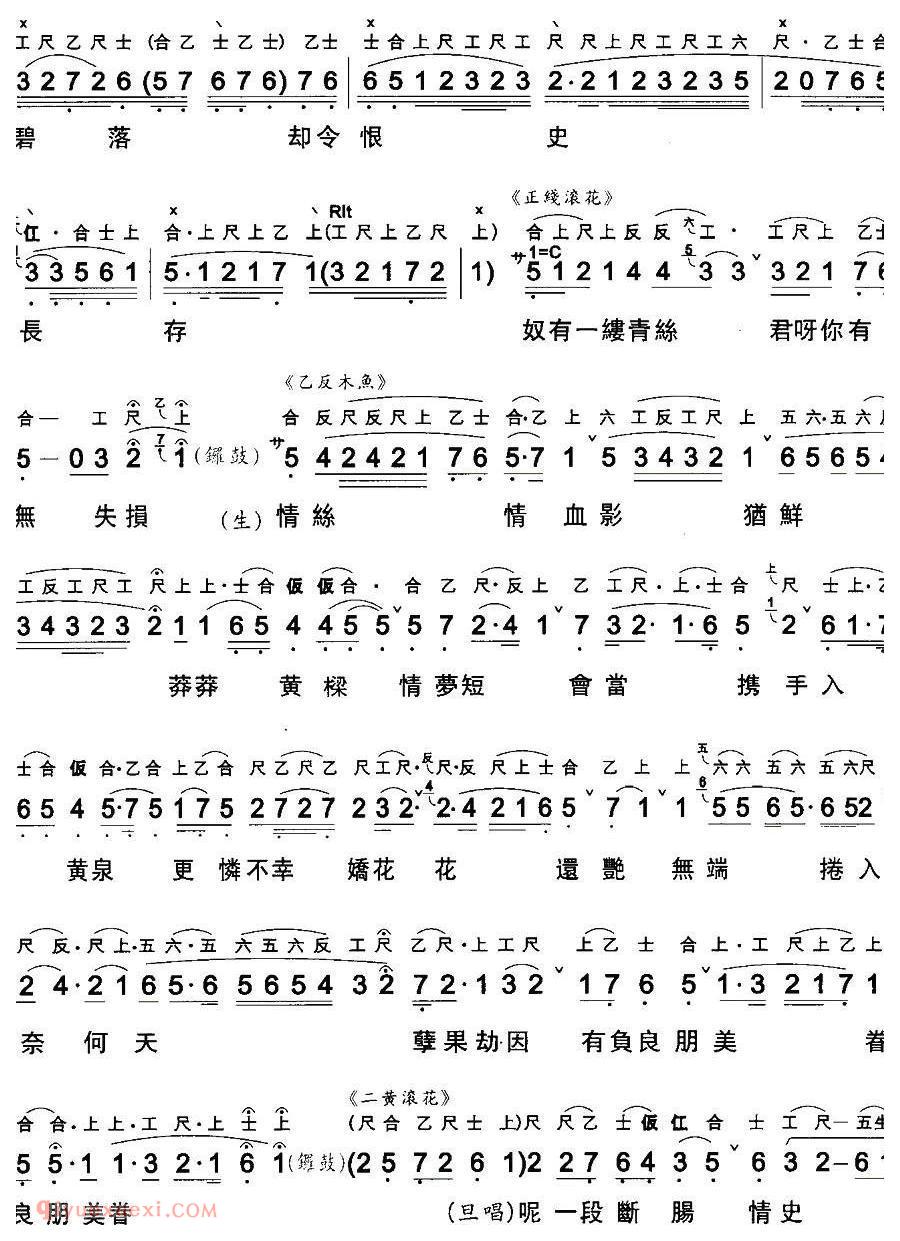 x 丶 x 丶 x
工 尺 乙 尺 士 (合 乙 士 乙 士) 乙 士 士 合 上 尺 工 尺 工 尺 尺 上 尺 工 尺 工 六 尺 · 乙 士 合
3 2 7 2 6 (5 7 6 7 6) 7 6 6 5 1 2 3 2 3 2 · 2 1 2 3 2 3 5 2 0 7 6 5
碧 落 却 令 恨 史
《正綫滚花》
丶 x 丶 Rit x
仜 · 合 士 上 合 · 上 尺 上 乙 上 (工 尺 上 乙 尺 上) 合 上 尺 上 反 反 六 工 · 工 尺 上 乙 士
3 3 5 6 1 5 · 1 2 1 7 1 (3 2 1 7 2 1) サ 1=C 5 1 2 1 4 4 5 3 3 ˅ 3 2 1 7 6
長 存 奴 有 一 縷 青 絲 君 呀 你 有
《乙反木魚》
合 一 工 尺 乙 上 合 反 尺 反 尺 上 乙 士 合 · 乙 上 六 工 反 工 尺 上 五 六 · 五 六
5 – 0 3 2 7 1 (鑼鼓) サ 5 4 2 4 2 1 7 6 5 · 7 1 ˅ 5 3 4 3 2 1 ˅ 6 5 6 5 4
無 失 損 (生) 情 絲 情 血 影 猶 鮮
工 反 工 尺 工 尺 上 上 · 士 合 仮 仮 合 · 合 乙 尺 · 反 上 乙 工 尺 · 上 · 士 合 上 尺 士 上 · 乙
3 4 3 2 3 2 1 1 6 5 4 4 5 5 ˅ 5 7 2 · 4 1 ˅ 7 3 2 · 1 · 6 5 1 2 ˅ 6 1 · 7
莽 莽 黄 樑 情 夢 短 會 當 携 手 入
士 合 仮 合 · 乙 合 上 乙 合 尺 乙 尺 乙 尺 工 尺 · 反 尺 · 反 尺 上 士 合 乙 上 上 五 六 六 五 六 五 六 尺
6 5 4 5 · 7 5 1 7 5 2 7 2 7 2 3 2 · ˅ 4 2 · 4 2 1 6 5 ˅ 7 1 ˅ 1 6 5 5 6 5 · 6 5 2
黄 泉 更 憐 不 幸 嬌 花 花 還 艷 無 端 捲 入
尺 反 · 尺 上 · 五 六 · 五 六 五 六 反 工 尺 乙 尺 · 上 工 尺 上 乙 士 合 上 · 工 尺 上 乙 上
2 4 · 2 1 6 5 · 6 5 6 5 4 3 2 7 2 · 1 3 2 ˅ 1 7 6 5 ˅ 1 · 3 2 1 7 1
奈 何 天 孽 果 劫 因 有 負 良 朋 美 眷
《二黄滚花》
合 合 · 上 上 · 工 尺 · 上 士 上 (尺 合 乙 尺 士 上) 尺 尺 乙 士 仮 仜 合 士 工 尺 一 五 生
5 5 · 1 1 · 3 2 · 1 6 1 (鑼鼓) (2 5 7 2 6 1) 2 2 7 6 4 3 5 ˅ 6 3 2 – 6 1
良 朋 美 眷 (旦唱) 呢 一 段 斷 腸 情 史